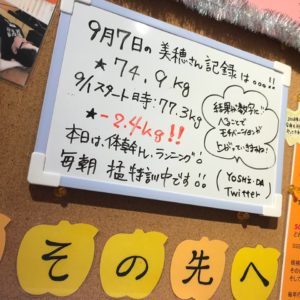 9月7日の 美穂さん記録は...!!
★74.9kg
9/1スタート時:77.3kg
★-2.4kg!!
本日は、体幹トレ、ランニング!
毎朝 猛特訓中です!!
結果が数字で
へることで
モチベーションが
上がっていきますね!
(YOSHI'S DA
Twitter)
その先へ